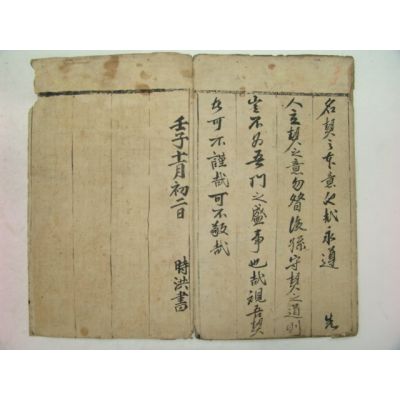 名契之本意也哉永遵 先
人立契之意勿替後孫守契之道則
豈不為吾門之盛事也哉視吾契
者可不謹哉可不敬哉
壬子十二月初二日
時洪書